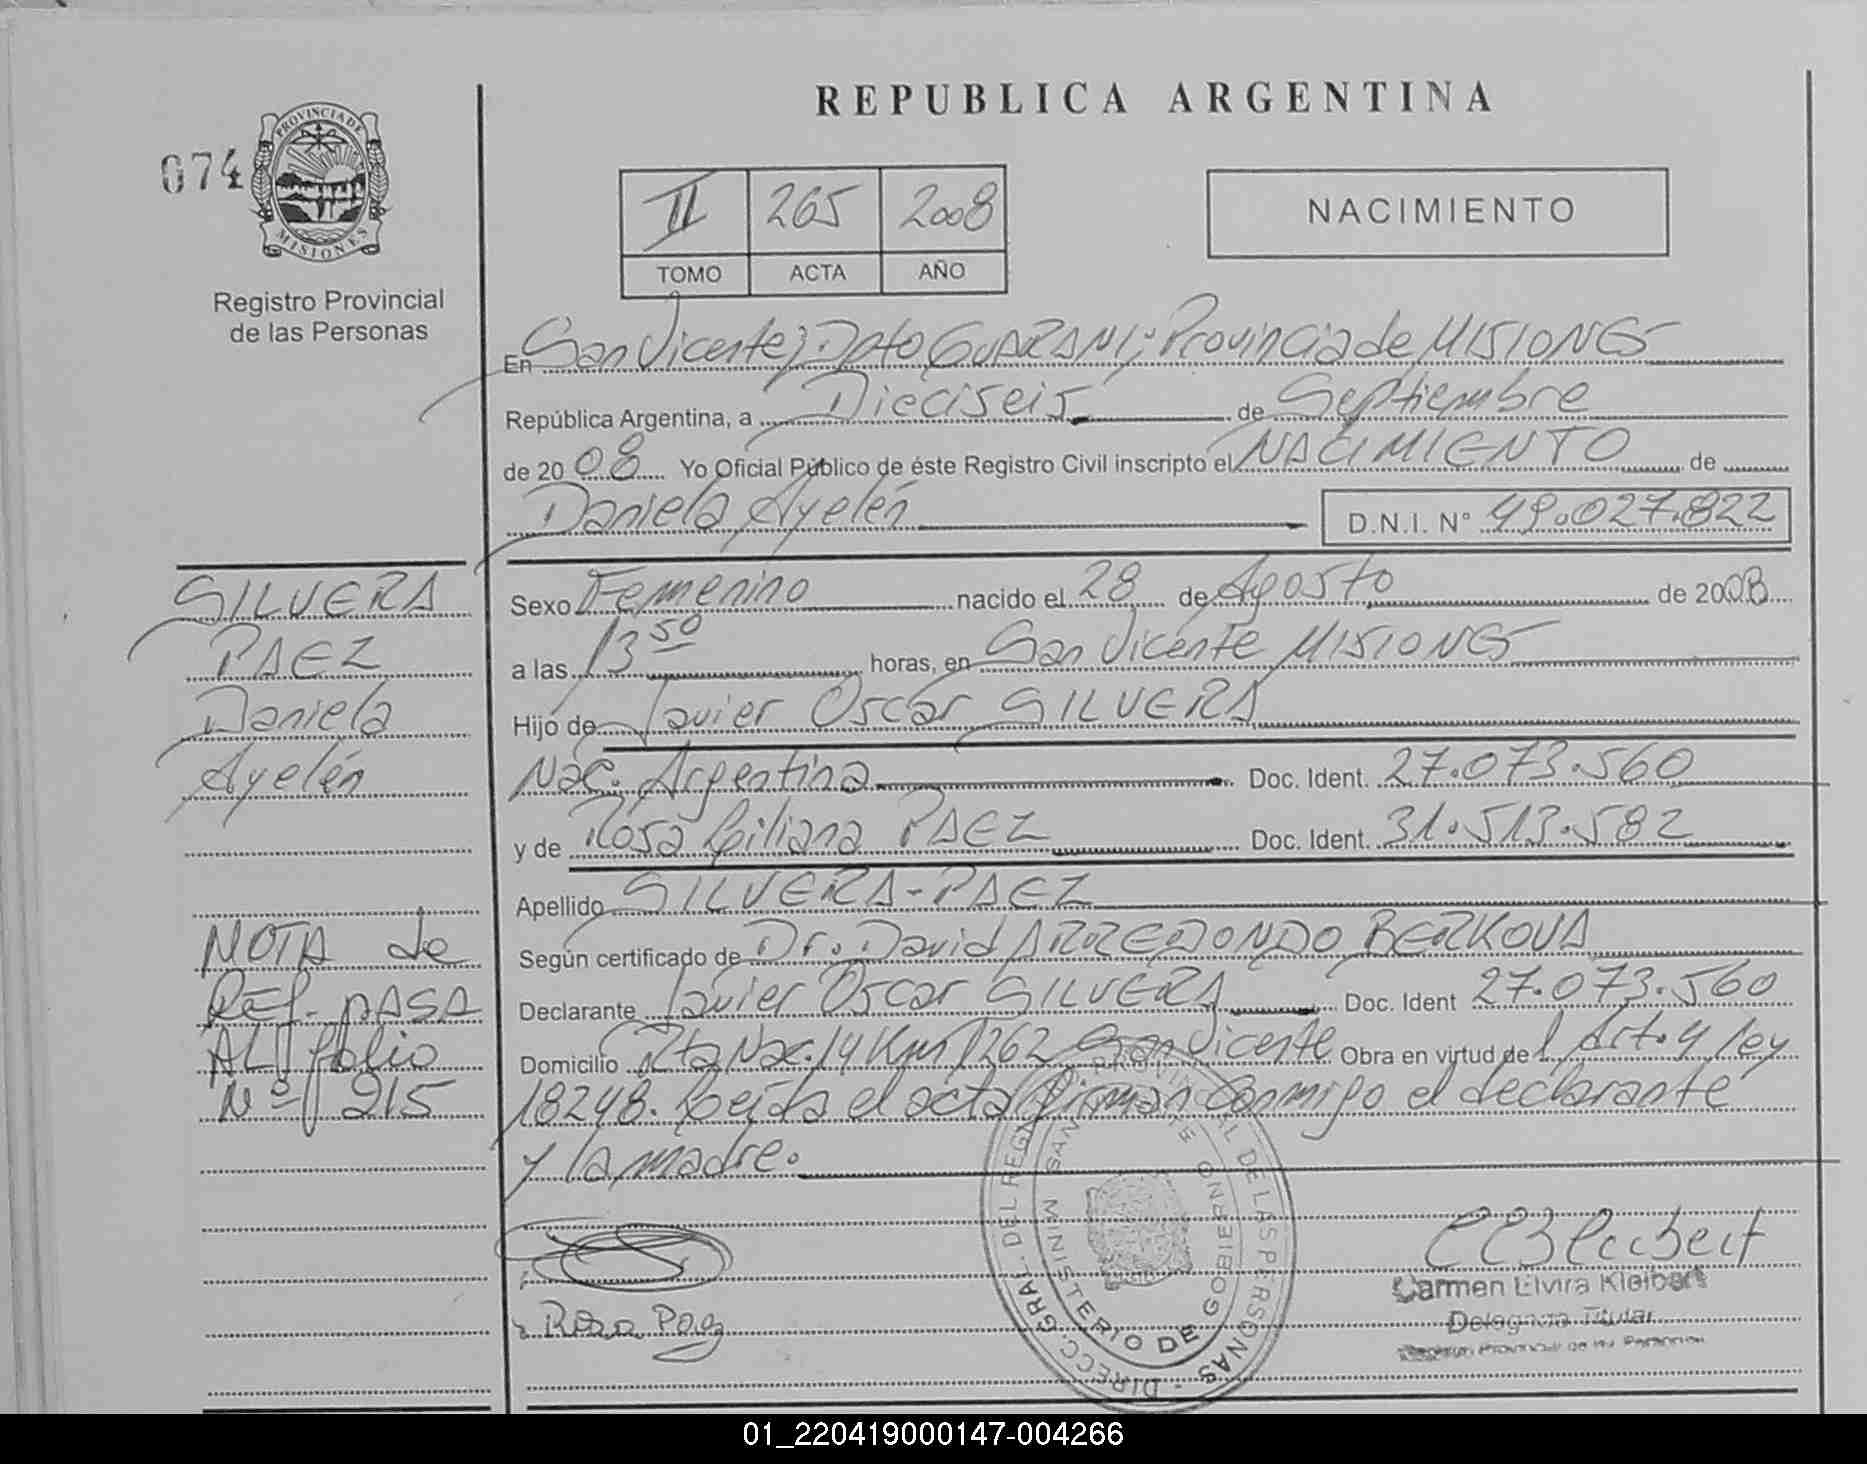 REPUBLICA ARGENTINA
074
PROVINCIA DE
MISIONES
Registro Provincial
de las Personas
II 265 2008
TOMO ACTA AÑO
NACIMIENTO
En San Vicente; Dpto GUARANI; Provincia de MISIONES
República Argentina, a Dieciseis de Septiembre
de 2008 Yo Oficial Público de éste Registro Civil inscripto el NACIMIENTO de
Daniela Ayelén D.N.I. N° 49.027.822
SILVERA
PAEZ
Daniela
Ayelén
Sexo Femenino nacido el 28 de Agosto de 2008
a las 13 50 horas, en San Vicente MISIONES
Hijo de Javier Oscar SILVERA
Nac. Argentina Doc. Ident. 27.073.560
y de Rosa Liliana PAEZ Doc. Ident. 31.513.582
Apellido SILVERA-PAEZ
Según certificado de Dr. David ARREDONDO BERKOVA
Declarante Javier Oscar SILVERA Doc. Ident 27.073.560
Domicilio Rta Nac. 14 Km 1262 San Vicente Obra en virtud del Art. 4 ley
18248. Leída el acta firman conmigo el declarante
y la madre.
NOTA de
REF. PASA
AL folio
Nº 215
Rosa Paez
DIRECC. GRAL. DEL REG. PROVINCIAL DE LAS PERSONAS
MINISTERIO DE GOBIERNO
SAN VICENTE
Carmen Elvira Kleibert
Delegada Titular
Registro Provincial de las Personas
01_220419000147-004266